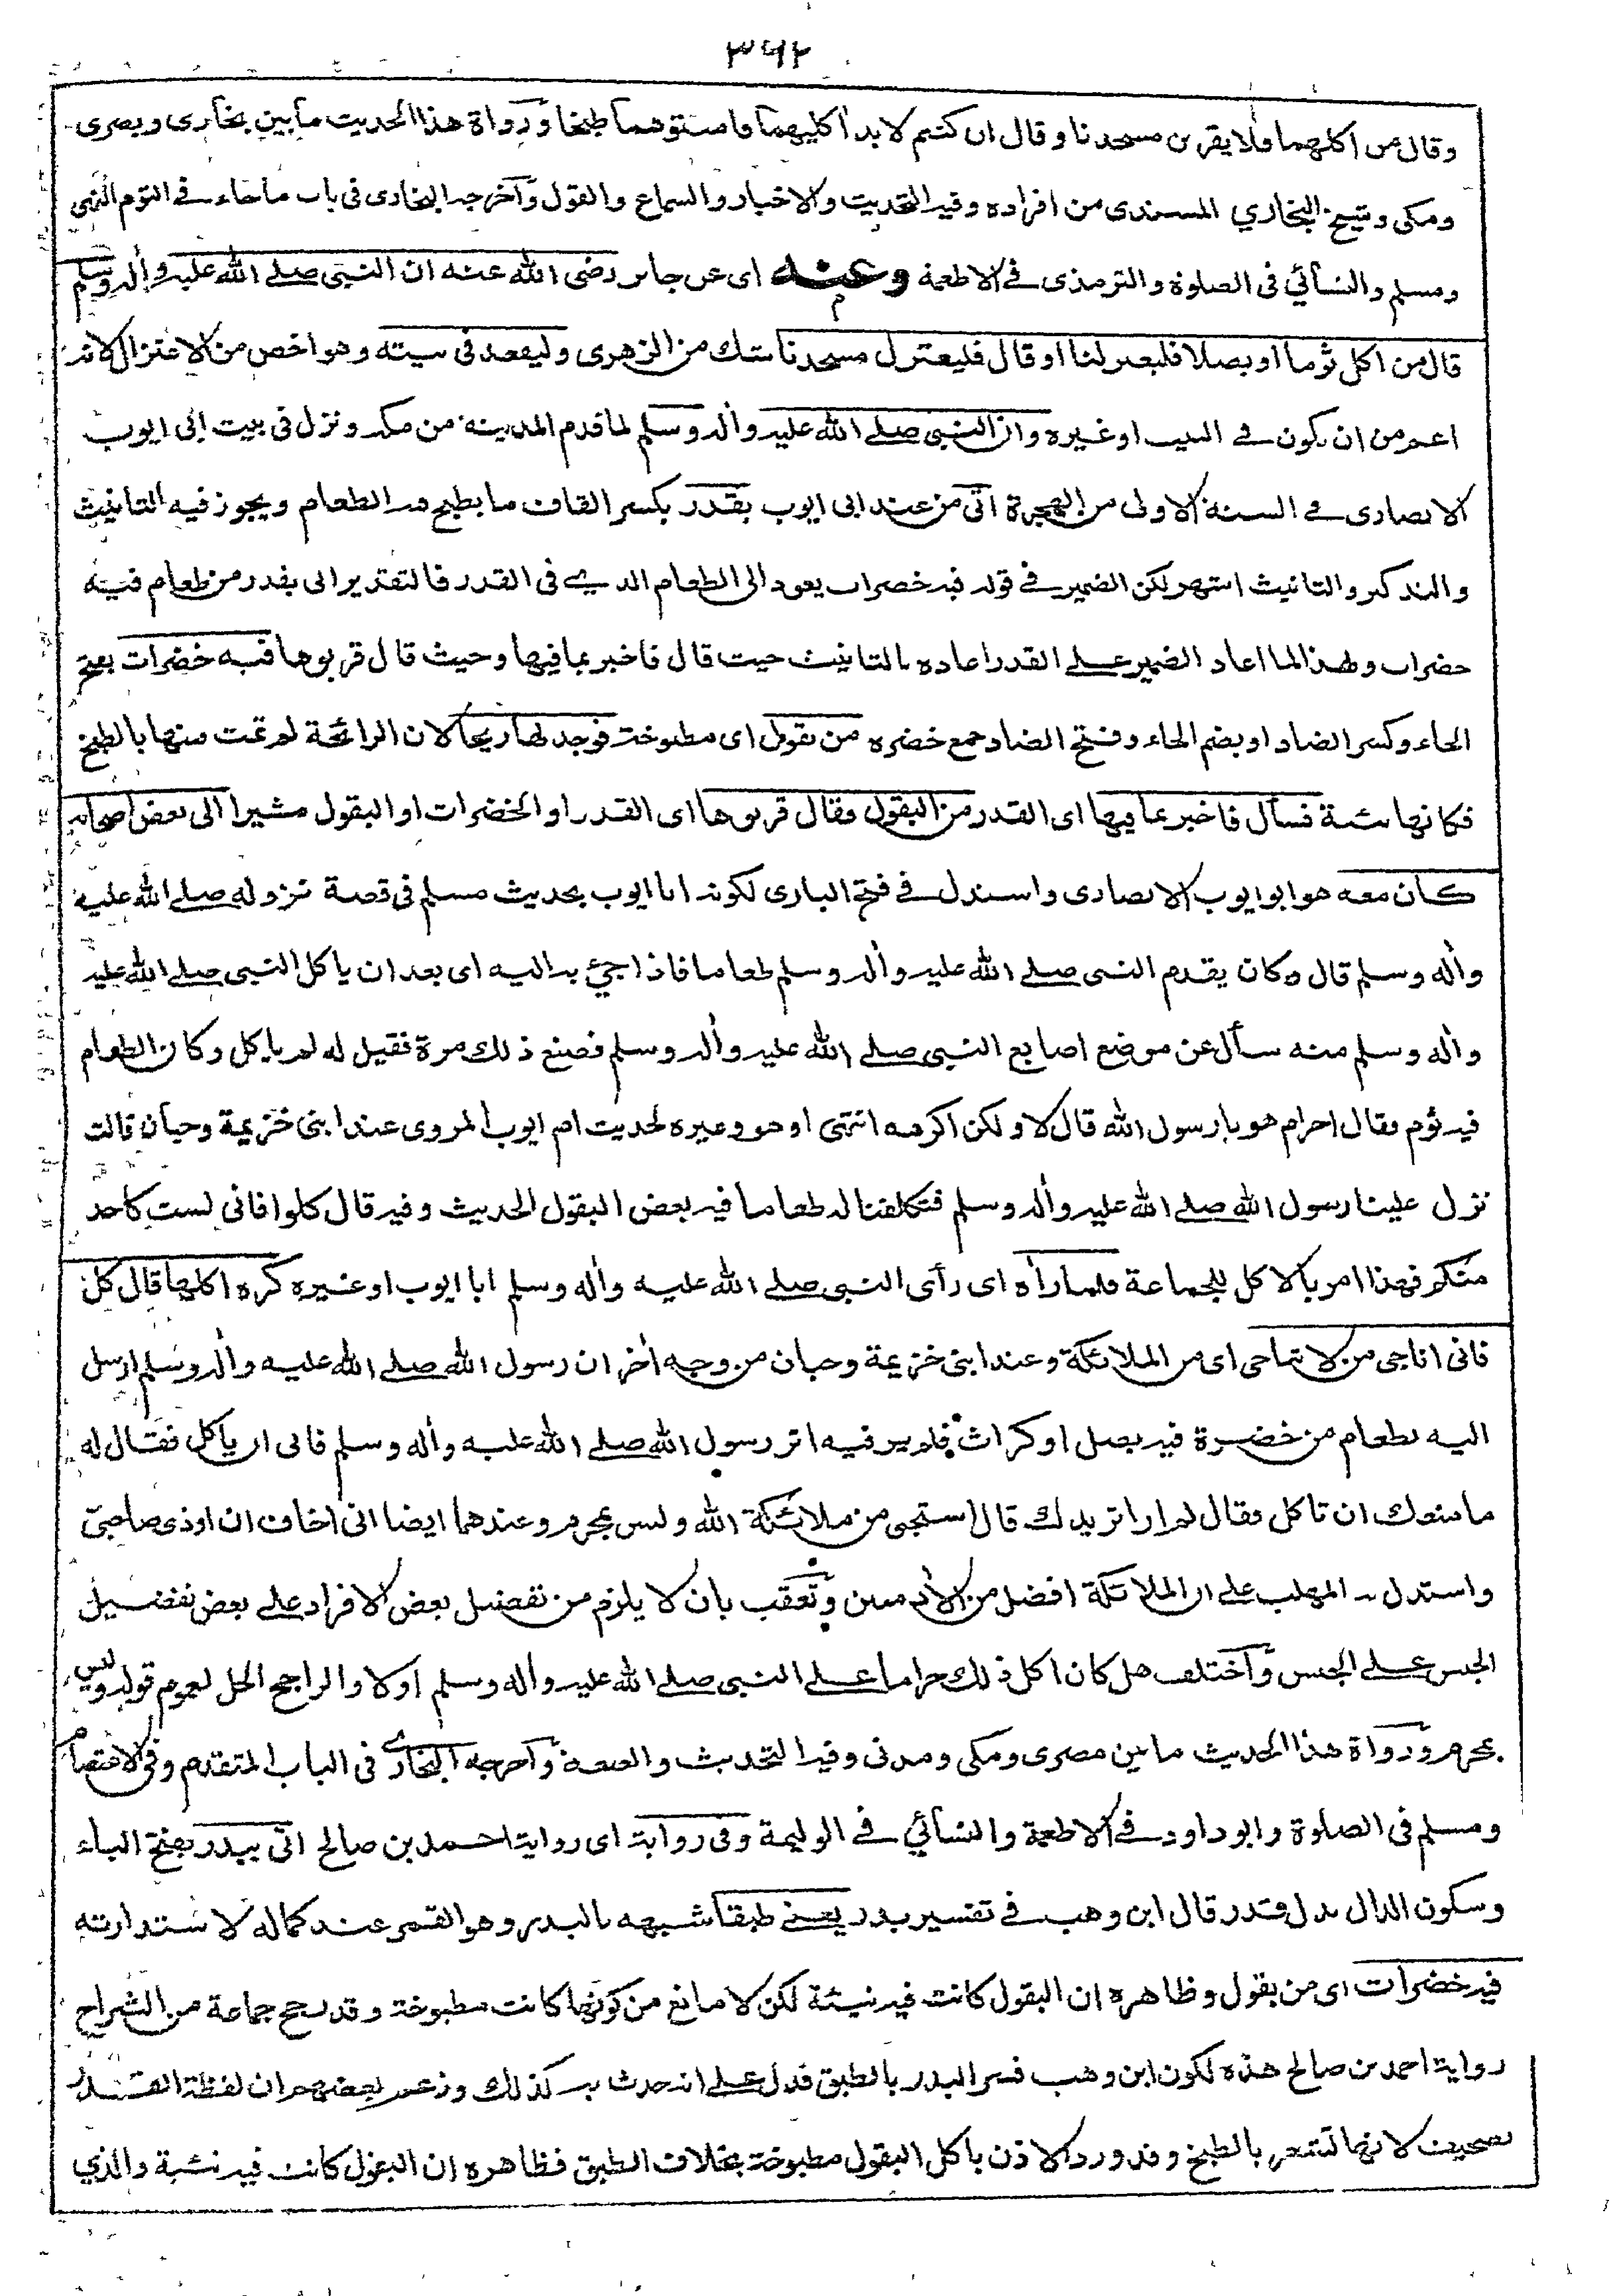 ٣٦٢
وقال من اكلهما فلا يقربن مسجدنا وقال ان كنتم لا بد اكليهما فامتوهما طبخا ورواة هذا الحديث ما بين بخارى وبصرى
ومكى وشيخ البخاري المسندى من افراده وفيه التحديث والاخبار والسماع والقول وآخرجه البخارى فى باب ماجاء فى الثوم النى
ومسلم والنسائي فى الصلوة والترمذى فى الاطعمة وعنه اى عن جابر رضى الله عنه ان النبى صلے الله عليه وأله وسلم
قال من اكل ثوما او بصلا فليعتزلنا او قال فليعتزل مسجدنا شك من الزهرى وليقعد فى بيته وهو اخص من الاعتزال لانه
اعم من ان يكون فى البيت او غيره وان النبى صلے الله عليه وأله وسلم لما قدم المدينة من مكة ونزل فى بيت ابى ايوب
الانصارى فى السنة الاولى من الهجرة اتى من عند ابى ايوب بقدر بكسر القاف ما يطبخ فيه الطعام ويجوز فيه التانيث
والتذكير والتانيث اشهر لكن الضمير فى قوله فيه خضرات يعود الى الطعام الذى فى القدر فالتقدير اتى بقدر من طعام فيه
خضرات ولهذا لما اعاد الضمير على القدر اعاده بالتانيث حيث قال فاخبر بما فيها وحيث قال قربوها فيه خضرات بفتح
الخاء وكسر الضاد او بضم الخاء وفتح الضاد جمع خضره من بقول اى مطبوخة فوجد لها ريحا لان الرائحة لم تمت منها بالطبخ
فكانها نيئة فسأل فاخبر بما فيها اى القدر من البقول فقال قربوها اى القدر او الخضرات او البقول مشيرا الى بعض اصحابه
كان معه هو ابو ايوب الانصارى واستدل فى فتح البارى لكونه ابا ايوب بحديث مسلم فى قصة نزوله صلے الله عليه
وأله وسلم قال وكان يقدم النبى صلے الله عليه وأله وسلم طعاما فاذا جيء به اليه اى بعد ان ياكل النبى صلے الله عليه
وأله وسلم منه سأل عن موضع اصابع النبى صلے الله عليه وأله وسلم فصنع ذلك مرة فقيل له لم ياكل وكان الطعام
فيه ثوم فقال احرام هو يا رسول الله قال لا ولكن اكرهه انتهى او هو وغيره لحديث ام ايوب المروى عند ابنى خزيمة وحبان قالت
نزل علينا رسول الله صلے الله عليه وأله وسلم فتكلفنا له طعاما فيه بعض البقول الحديث وفيه قال كلوا فانى لست كاحد
منكم فهذا امر بالاكل للجماعة فلما رأه اى رأى النبى صلے الله عليه وأله وسلم ابا ايوب او غيره كره اكلها قال كل
فانى اناجى من لا تناجى اى من الملائكة وعند ابنى خزيمة وحبان من وجه أخر ان رسول الله صلے الله عليه وأله وسلم ارسل
اليه بطعام من خضرة فيه بصل او كراث فلم ير فيه اثر رسول الله صلے الله عليه وأله وسلم فابى ان ياكل فقال له
ما منعك ان تاكل فقال لم ار اثر يدك قال استحيى من ملائكة الله وليس بمحرم وعندهما ايضا انى اخاف ان اوذى صاحبى
واستدل به المهلب على ان الملائكة افضل من الأدميين وتعقب بان لا يلزم من تفضيل بعض الافراد على بعض تفضيل
الجنس على الجنس وآختلف هل كان اكل ذلك حراما على النبى صلے الله عليه وأله وسلم اولا والراجح الحل لعموم قوله وليس
بمحرم ورواة هذا الحديث ما بين مصرى ومكى ومدنى وفيه التحديث والعنعنة وآخرجه البخارى فى الباب المتقدم وفى الاعتصام
ومسلم فى الصلوة وابو داود فى الاطعمة والنسائي فى الوليمة وفى رواية اى رواية احمد بن صالح اتى ببدر بفتح الباء
وسكون الدال بدل قدر قال ابن وهب فى تفسير بدر يعنى طبقا شبهه بالبدر وهو القمر عند كماله لاستدارته
فيه خضرات اى من بقول وظاهره ان البقول كانت فيه نيئة لكن لا مانع من كونها كانت مطبوخة وقد رجح جماعة من الشراح
رواية احمد بن صالح هذه لكون ابن وهب فسر البدر بالطبق فدل على انه حدث به كذلك وزعم بعضهم ان لفظة القدر
تصحيف لانها تشعر بالطبخ وقد ورد الاذن باكل البقول مطبوخة بخلاف الطبق فظاهره ان البقول كانت فيه نيئة والذي